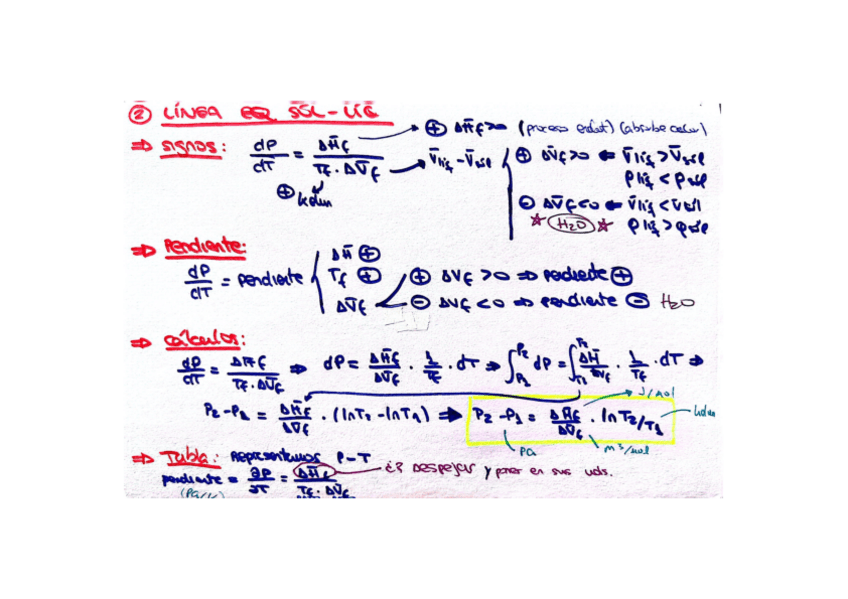 ② LÍNEA EQ SÓL-LÍQ
⇒ Signos: dP/dT = ΔH̄f / Tf · ΔV̄f → ⊕ ΔH̄f>0 (proceso endot) (absorbe calor)
⊕ Kelvin
V̄líq - V̄sól
⊕ ΔV̄f>0 ⇐ V̄líq > V̄sól
ρ líq < ρ sól
⊖ ΔV̄f<0 ⇐ V̄líq < V̄sól
★ H₂O ★ ρ líq > ρ sól
⇒ Pendiente:
dP/dT = pendiente
ΔH̄ ⊕
Tf ⊕
ΔV̄f
⊕ ΔVf > 0 ⇒ pendiente ⊕
⊖ ΔVf < 0 ⇒ pendiente ⊖ H₂O
⇒ Cálculos:
dP/dT = ΔH̄f / Tf · ΔV̄f ⇒ dP = ΔH̄f/ΔV̄f · 1/Tf · dT ⇒ ∫P₁P₂ dP = ∫T₁T₂ ΔH̄/ΔV̄f · 1/Tf · dT ⇒
P₂-P₁ = ΔH̄f/ΔV̄f · (lnT₂ - lnT₁) ⇒ P₂-P₁ = ΔH̄f/ΔV̄f · lnT₂/T₁
J/mol
Kelvin
Pa
m³/mol
⇒ Tabla: Representamos P-T
pendiente = ∂P/∂T = ΔH̄f / Tf · ΔV̄f — ¿? Despejar y poner en sus uds.
(Pa/K)